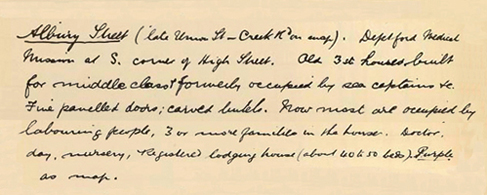 Albury Street ('late Union St - Creek Rd on map). Deptford Medical
Mission at S. corner of High Street. Old 3 st houses, built
for middle class & formerly occupied by sea captains &c.
Fine panelled doors; carved lintels. Now most are occupied by
labouring people, 3 or more families in the house. Doctor,
day, nursery, Registered lodging house (about 40 to 50 beds). Purple
as map.